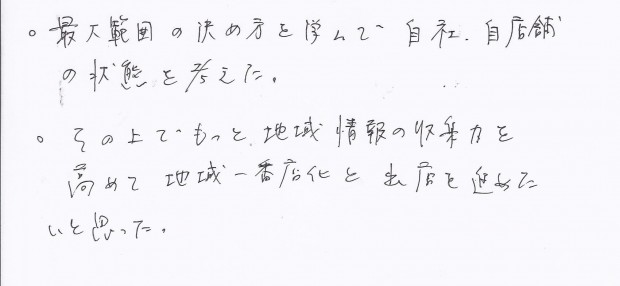 。最大範囲の決め方を学んで自社、自店舗
の状態を考えた。
。その上でもっと、地域情報の収集力を
高めて地域一番店化と出店を進めた
いと思った。